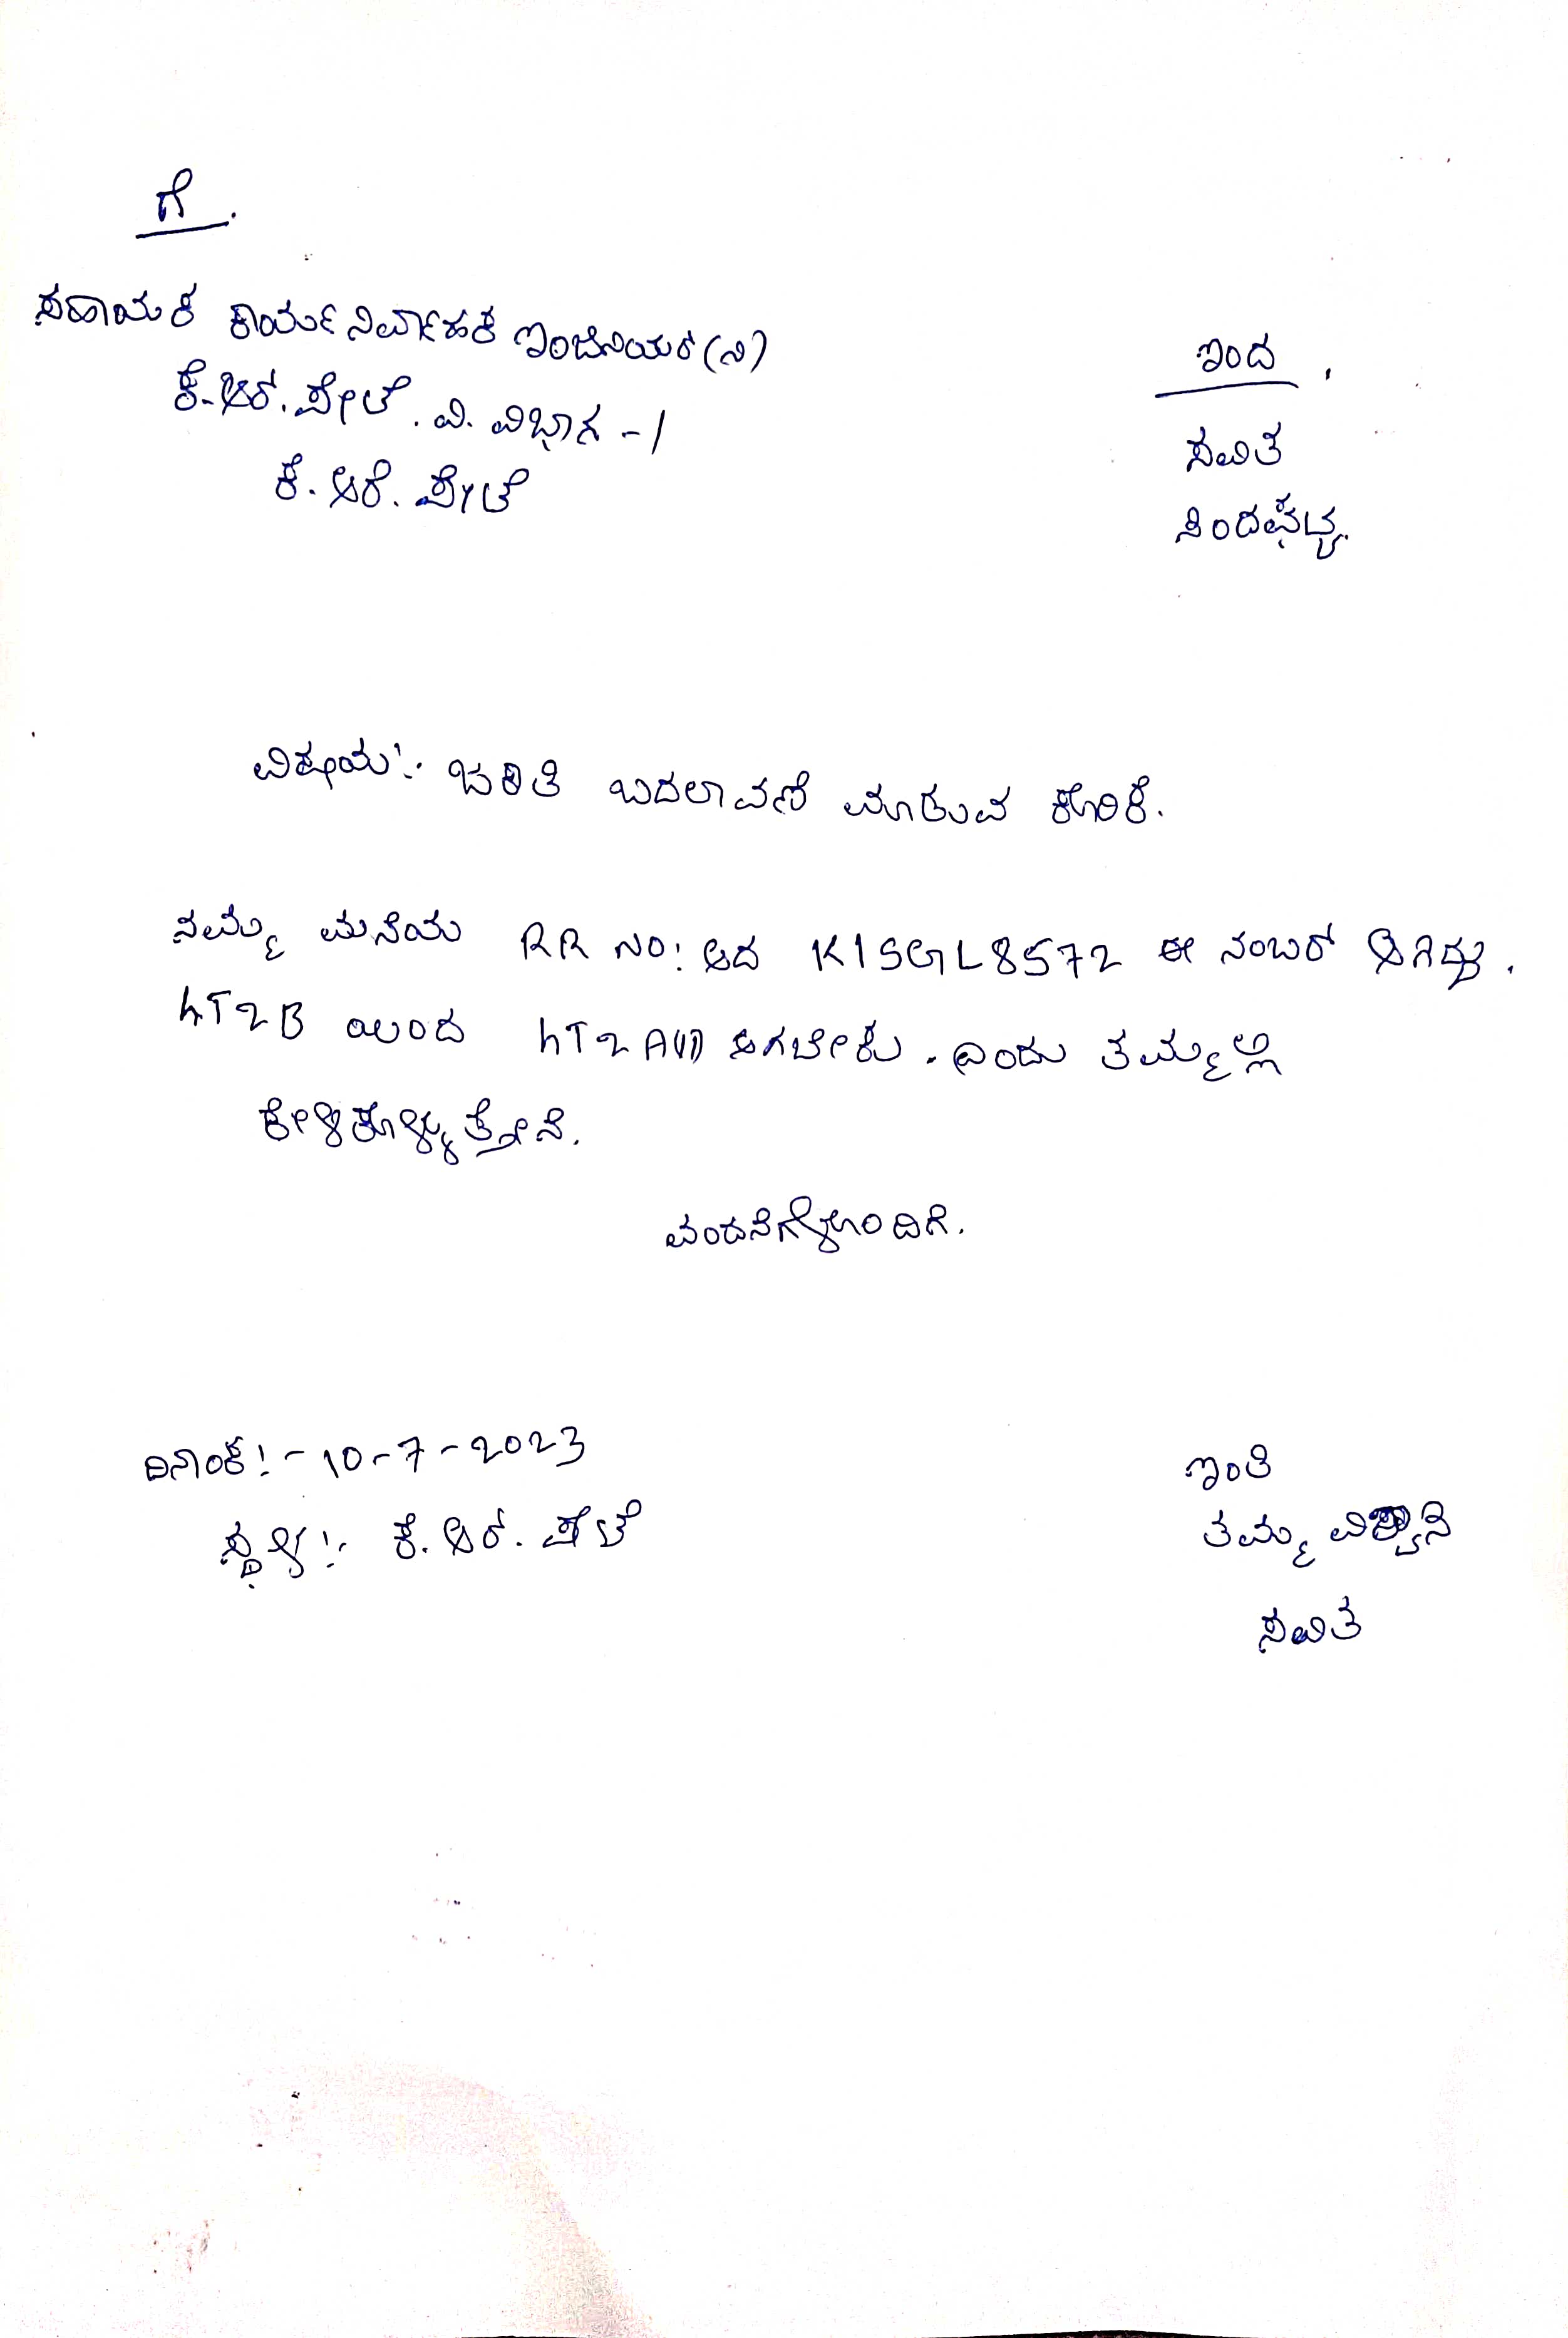 ಗೆ.
ಸಹಾಯಕ ಕಾರ್ಯನಿರ್ವಾಹಕ ಇಂಜಿನಿಯರ (ನಿ)
ಕೆ.ಆರ್. ಪೇಟೆ. ವಿ. ವಿಭಾಗ -1
ಕೆ. ಆರ್. ಪೇಟೆ
ಇಂದ,
ಸವಿತ
ಸಿಂದಘಟ್ಟ.
ವಿಷಯ:- ಜಕಾತಿ ಬದಲಾವಣೆ ಮಾಡುವ ಕೋರಿಕೆ.
ನಮ್ಮ ಮನೆಯ RR NO: ಆದ K1SGL8572 ಈ ನಂಬರ್ ಆಗಿದ್ದು.
LT2B ಯಿಂದ LT2A(ii) ಆಗಬೇಕು. ಎಂದು ತಮ್ಮಲ್ಲಿ
ಕೇಳಿಕೊಳ್ಳುತ್ತೇನೆ.
ವಂದನೆಗಳೊಂದಿಗೆ.
ದಿನಾಂಕ:- 10-7-2023
ಸ್ಥಳ:- ಕೆ. ಆರ್. ಪೇಟೆ
ಇಂತಿ
ತಮ್ಮ ವಿಶ್ವಾಸಿ
ಸವಿತ